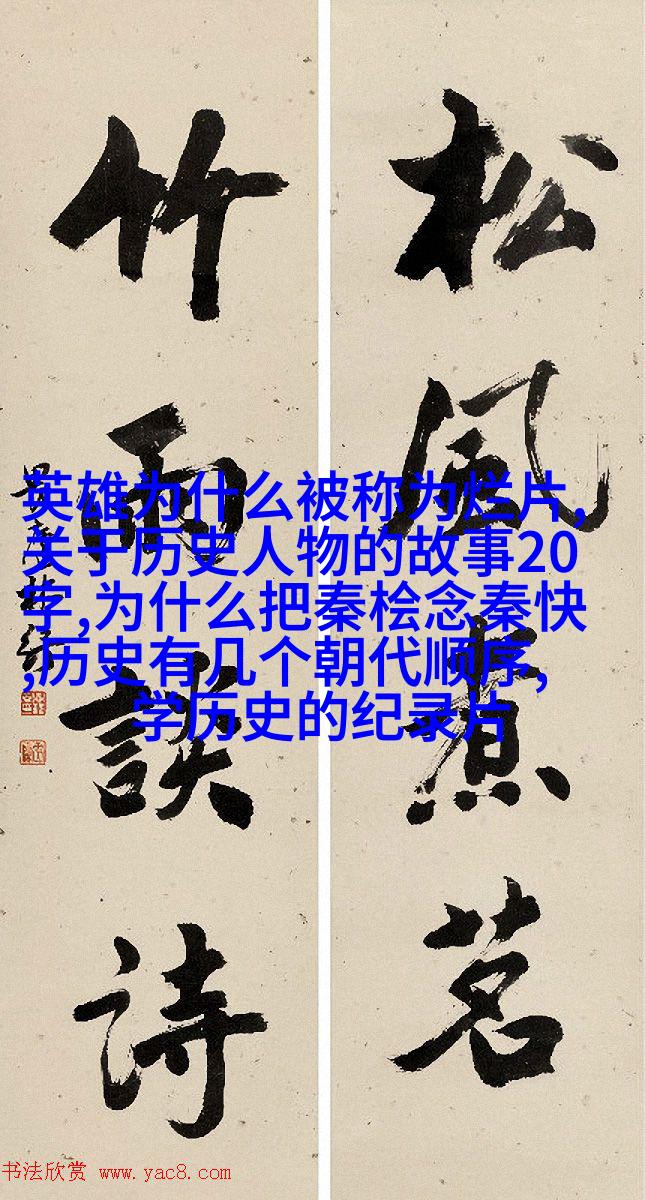 松風煮茗
竹雨談詩
英雄为什么被称为烂片,
关于历史人物的故事20
字,为什么把秦桧念秦快
,历史有几个朝代顺序,
学历史的纪录片
书法欣赏 www.yac8.com